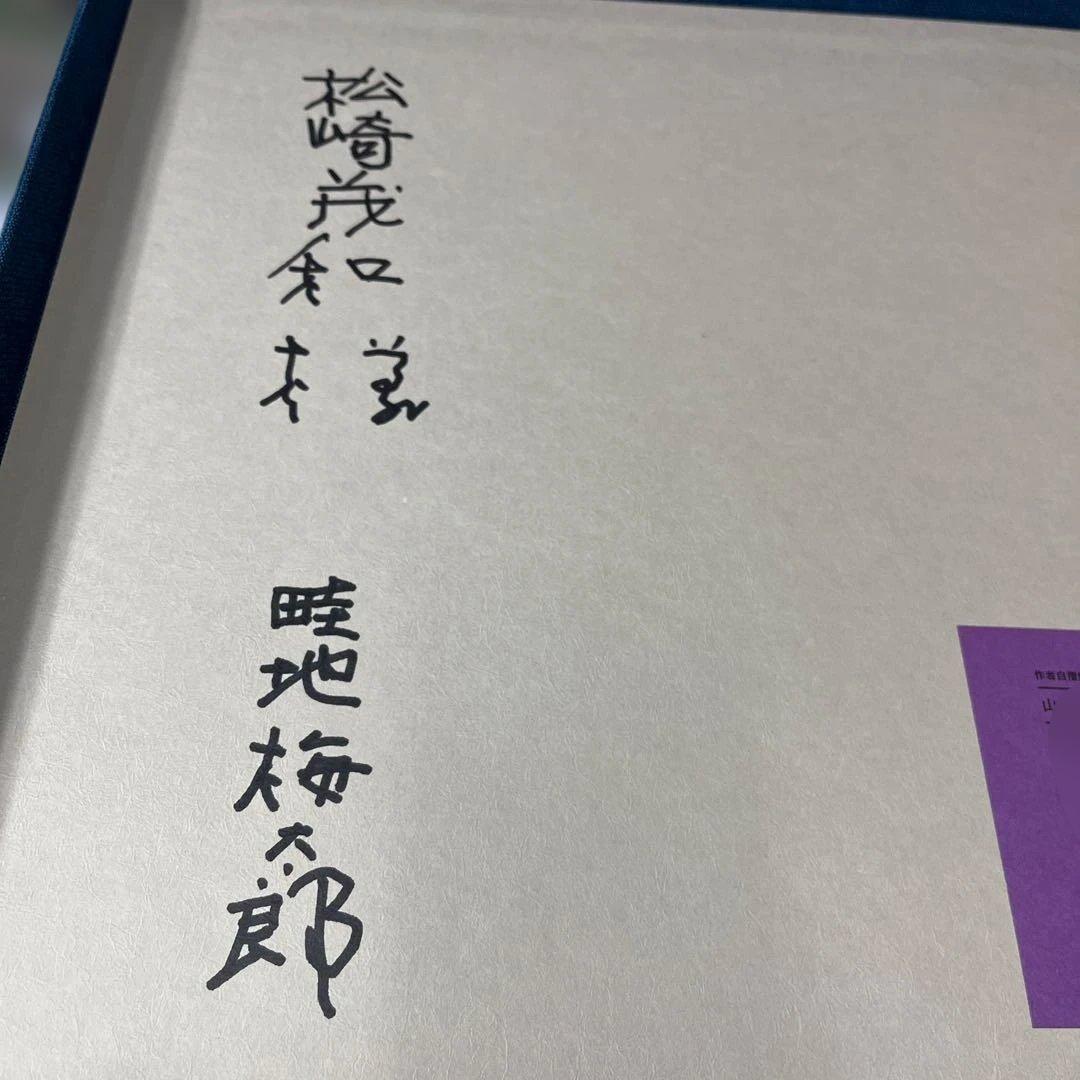 松崎茂和様
畦地梅太郎
作者自摺
山